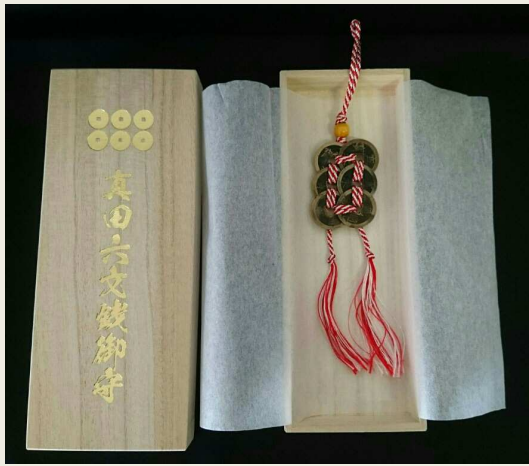 真田六文銭御守